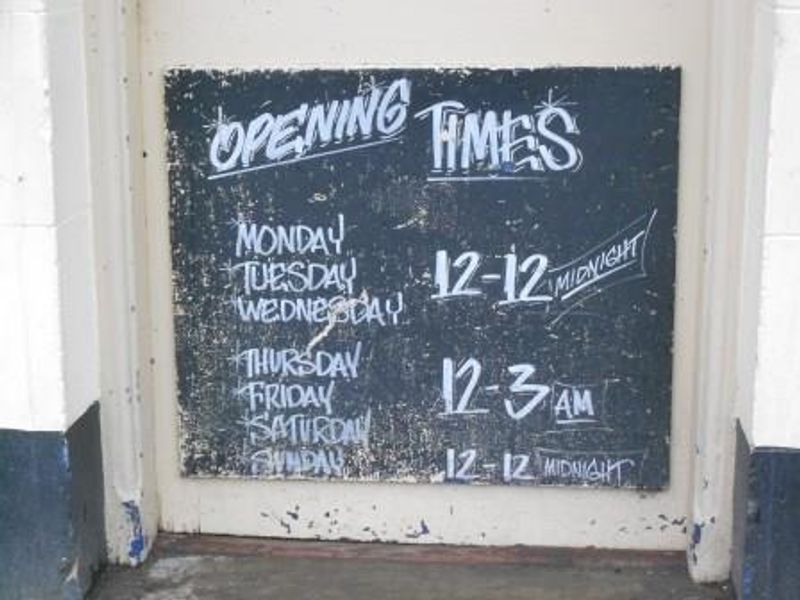 OPENING TIMES
MONDAY
TUESDAY 12-12 MIDNIGHT
WEDNESDAY
THURSDAY
FRIDAY 12-3 AM
SATURDAY
SUNDAY 12-12 MIDNIGHT